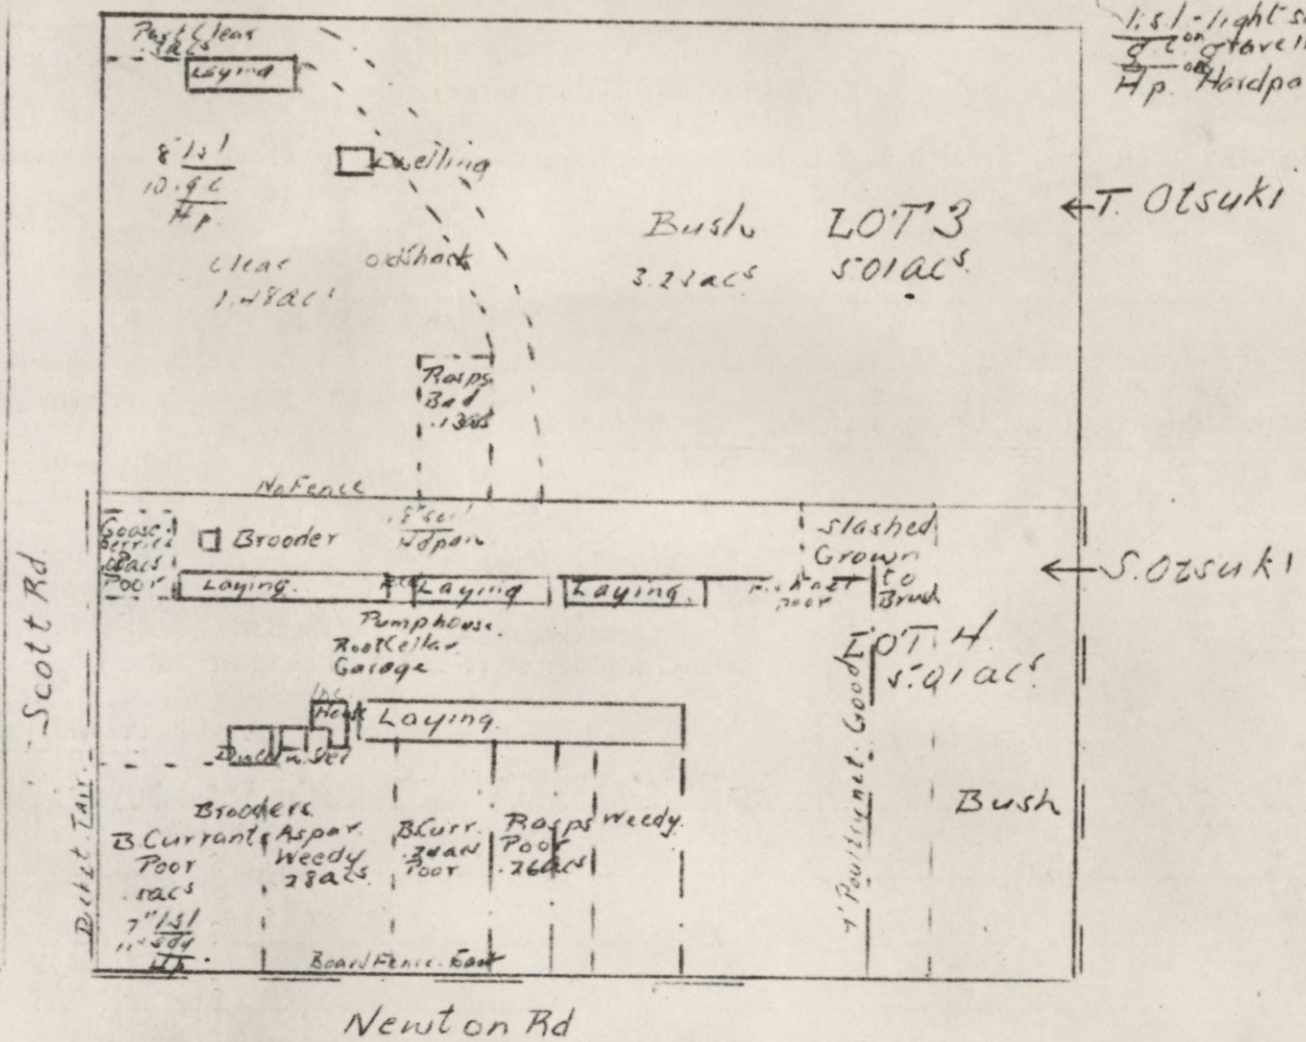 l.s.l - light
g.c. on
Hp. on
Part Clear
Laying
8" lsl
10" g c
Hp.
Dwelling
Clear
1.48 acs
old Shack
Bush
3.23 acs
LOT 3
5.01 acs
← T. Otsuki
Rasps
Bad
.13 acs
No Fence
Goose-
berries
Poor
Brooder
8" soil
Hdpan
Slashed
Grown
to
Brush
Laying.
Laying
Laying.
poor
← S. Otsuki
Pumphouse.
Root Cellar
Garage
LOT. 4.
5.01 acs
House
Laying.
Scott Rd
Picket Fair.
Brooders.
B. Currants
Poor
Aspar.
Weedy
28 acs
B. Curr.
Poor
Rasps
Poor
.26 acs
Weedy.
7' Poultry net. Good
Bush
7" lsl
11" sdy
Hp.
Board Fence.
Newton Rd